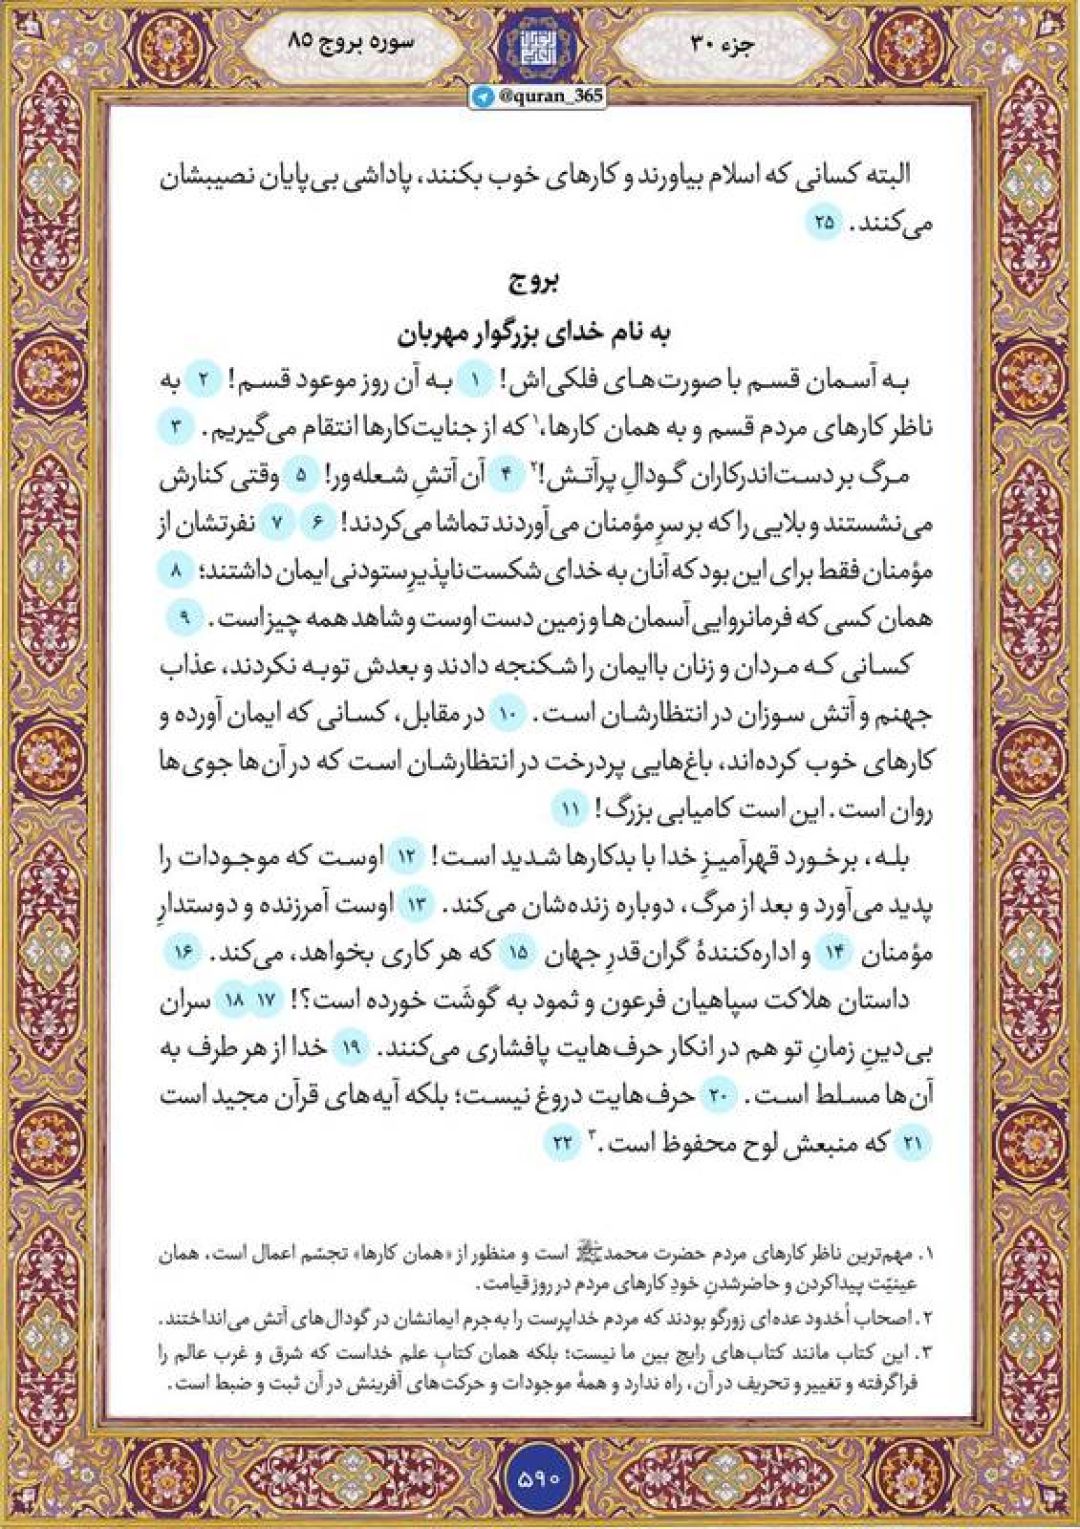 جزء ۳۰
سوره بروج ۸۵
@quran_365
البته کسانی که اسلام بیاورند و کارهای خوب بکنند، پاداشی بی‌پایان نصیبشان
می‌کنند. ۲۵
بروج
به نام خدای بزرگوار مهربان
به آسمان قسم با صورت‌های فلکی‌اش! ۱ به آن روز موعود قسم! ۲ به
ناظر کارهای مردم قسم و به همان کارها،۱ که از جنایت‌کارها انتقام می‌گیریم. ۳
مرگ بر دست‌اندرکاران گودالِ پرآتش!۲ ۴ آن آتشِ شعله‌ور! ۵ وقتی کنارش
می‌نشستند و بلایی را که بر سرِ مؤمنان می‌آوردند تماشا می‌کردند! ۶ ۷ نفرتشان از
مؤمنان فقط برای این بود که آنان به خدای شکست‌ناپذیرِ ستودنی ایمان داشتند؛ ۸
همان کسی که فرمانروایی آسمان‌ها و زمین دست اوست و شاهد همه چیز است. ۹
کسانی که مردان و زنان باایمان را شکنجه دادند و بعدش توبه نکردند، عذاب
جهنم و آتش سوزان در انتظارشان است. ۱۰ در مقابل، کسانی که ایمان آورده و
کارهای خوب کرده‌اند، باغ‌هایی پردرخت در انتظارشان است که در آن‌ها جوی‌ها
روان است. این است کامیابی بزرگ! ۱۱
بله، برخورد قهرآمیزِ خدا با بدکارها شدید است! ۱۲ اوست که موجودات را
پدید می‌آورد و بعد از مرگ، دوباره زنده‌شان می‌کند. ۱۳ اوست آمرزنده و دوستدارِ
مؤمنان ۱۴ و اداره‌کنندهٔ گران‌قدرِ جهان ۱۵ که هر کاری بخواهد، می‌کند. ۱۶
داستان هلاکت سپاهیان فرعون و ثمود به گوشَت خورده است؟! ۱۷ ۱۸ سران
بی‌دینِ زمانِ تو هم در انکار حرف‌هایت پافشاری می‌کنند. ۱۹ خدا از هر طرف به
آن‌ها مسلط است. ۲۰ حرف‌هایت دروغ نیست؛ بلکه آیه‌های قرآن مجید است
۲۱ که منبعش لوح محفوظ است.۳ ۲۲
۱. مهم‌ترین ناظر کارهای مردم حضرت محمدﷺ است و منظور از «همان کارها» تجسّم اعمال است، همان
عینیّت پیداکردن و حاضرشدنِ خودِ کارهای مردم در روز قیامت.
۲. اصحاب اُخدود عده‌ای زورگو بودند که مردم خداپرست را به‌جرم ایمانشان در گودال‌های آتش می‌انداختند.
۳. این کتاب مانند کتاب‌های رایج بین ما نیست؛ بلکه همان کتابِ علم خداست که شرق و غرب عالم را
فراگرفته و تغییر و تحریف در آن، راه ندارد و همهٔ موجودات و حرکت‌های آفرینش در آن ثبت و ضبط است.
۵۹۰